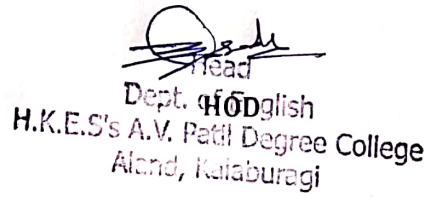 Head
Dept. of English
HOD
H.K.E.S's A.V. Patil Degree College
Aland, Kalaburagi